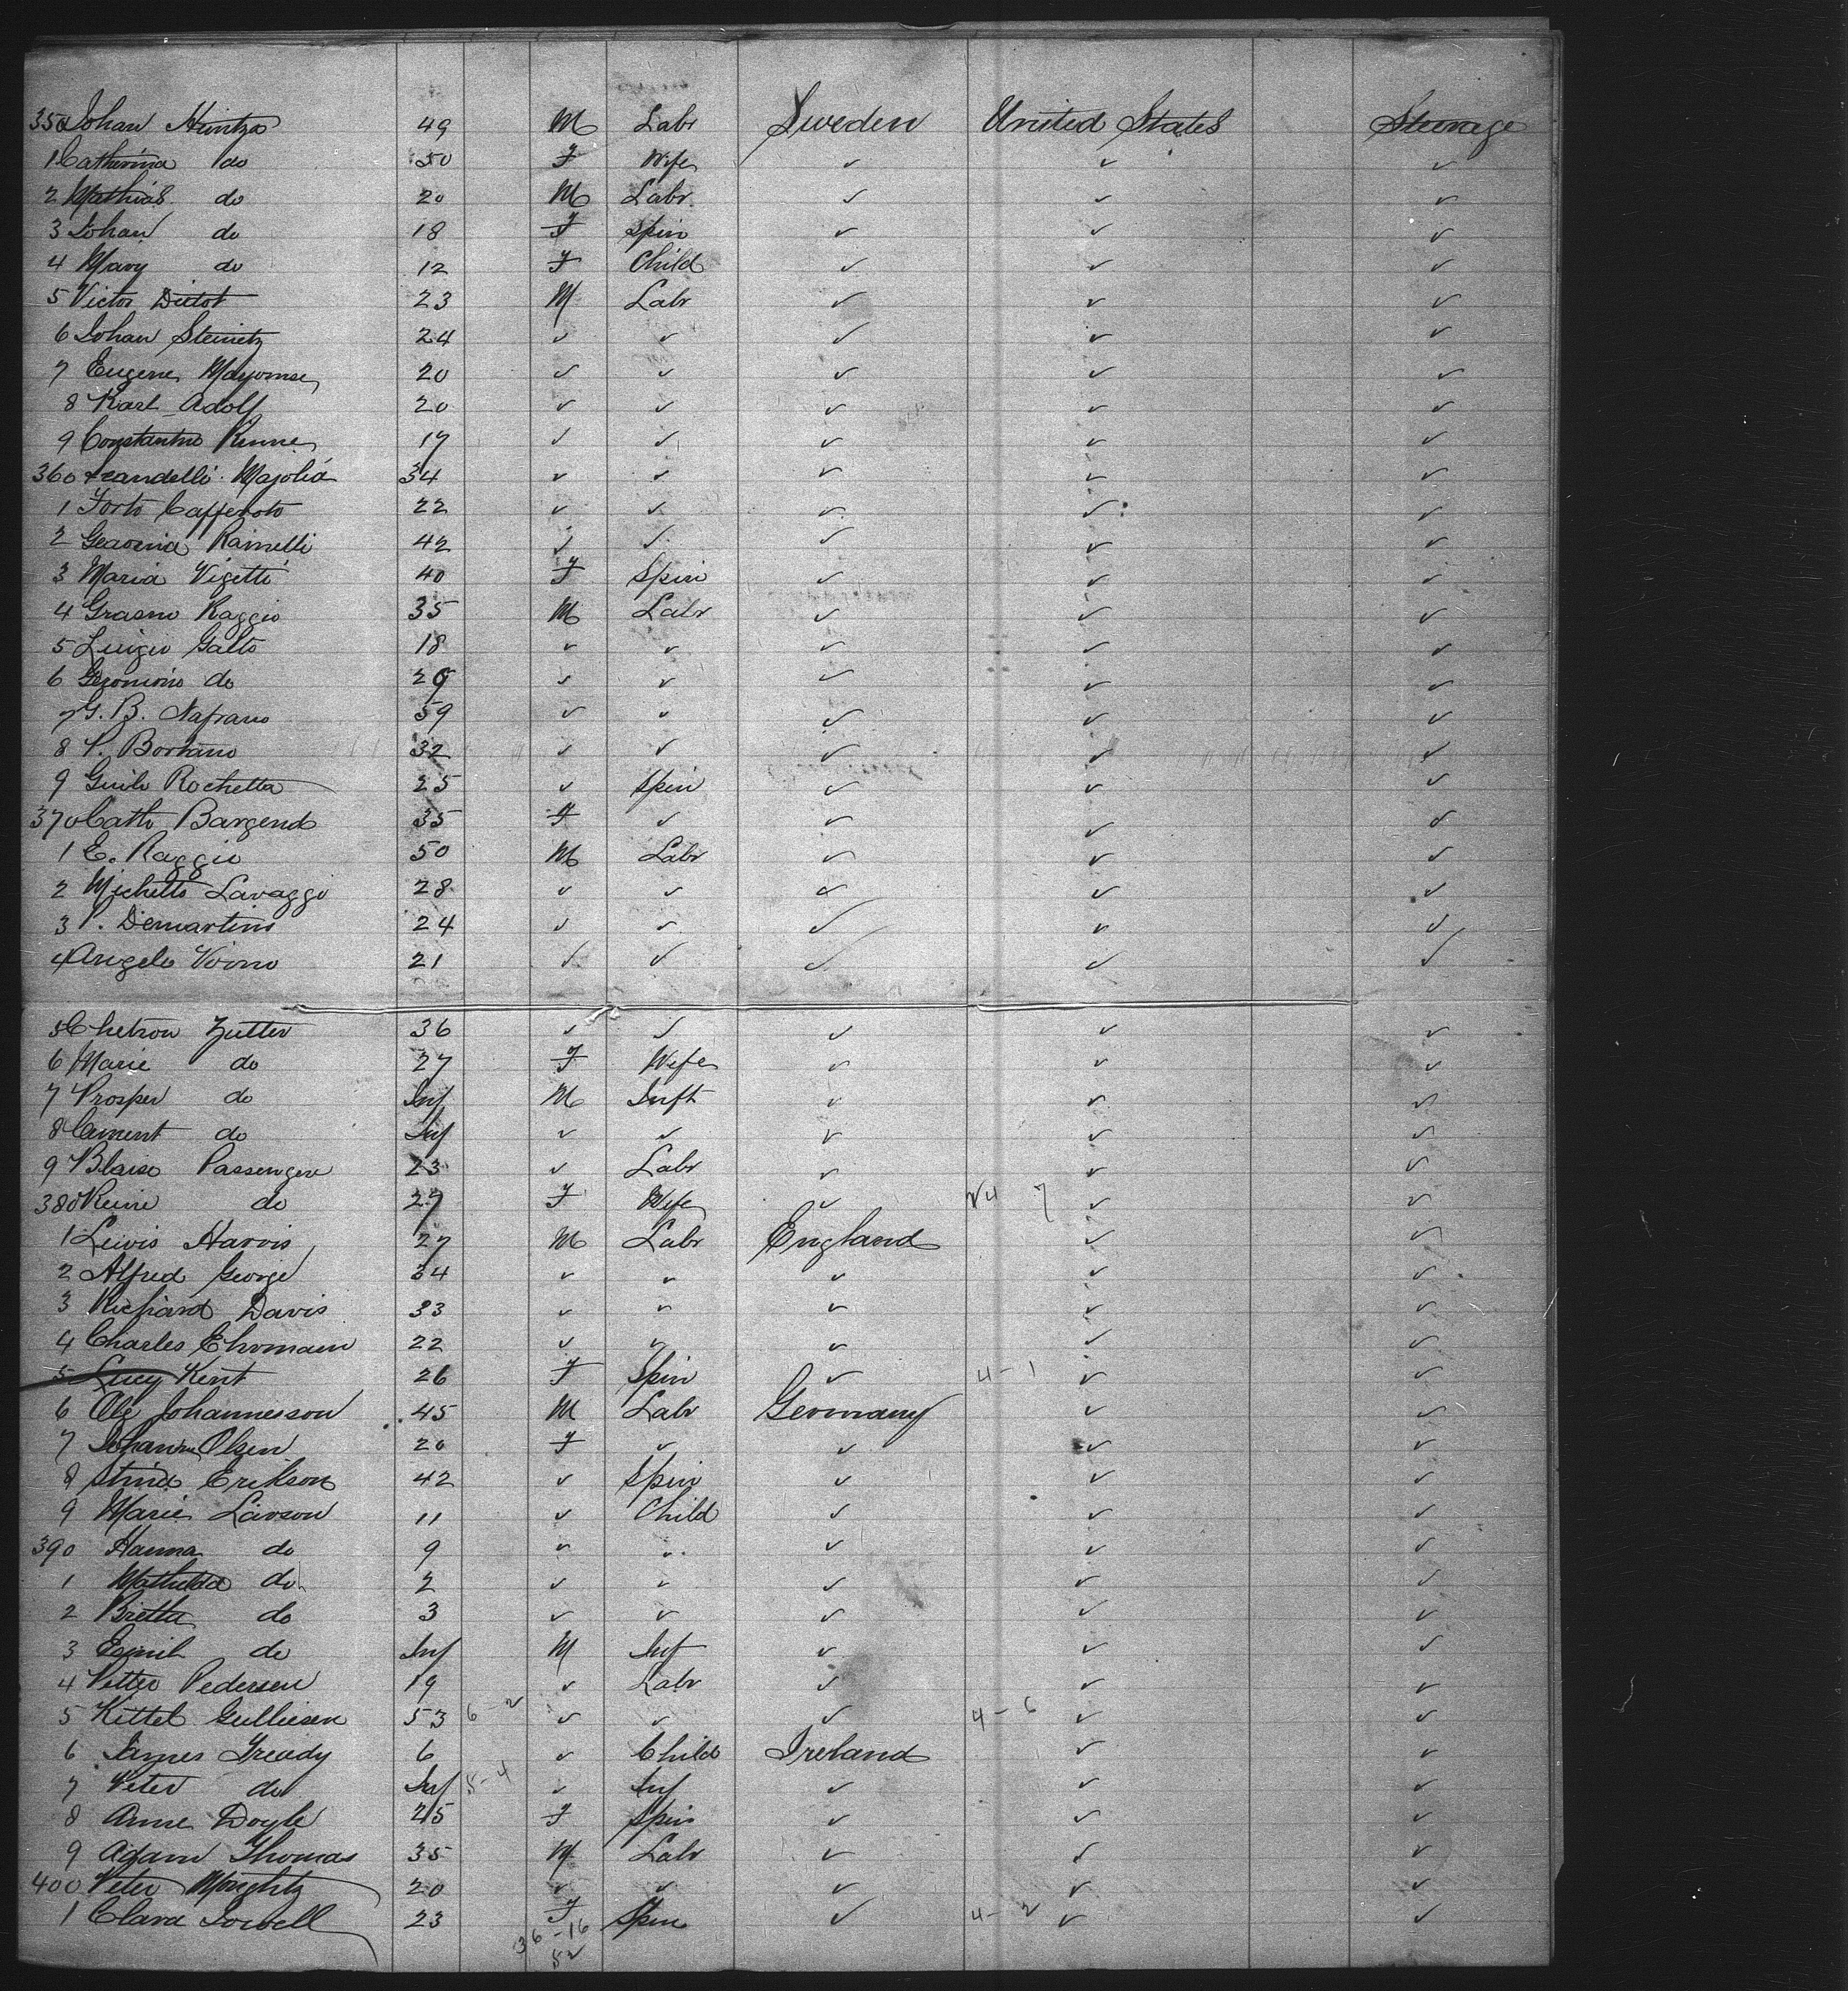 350 Johan Hintza 49 M Labr Sweden United States Steerage
1 Catherina do 50 F Wife ✓ ✓ ✓
2 Mathias do 20 M Labr ✓ ✓ ✓
3 Johan do 18 F Spin ✓ ✓ ✓
4 Mary do 12 F Child ✓ ✓ ✓
5 Victor Dietot 23 M Labr ✓ ✓ ✓
6 Johan Steinetz 24 ✓ ✓ ✓ ✓ ✓
7 Eugene 20 ✓ ✓ ✓ ✓ ✓
8 Karl Adolf 20 ✓ ✓ ✓ ✓ ✓
9 Constantine Renne 17 ✓ ✓ ✓ ✓ ✓
360 Majolia 34 ✓ ✓ ✓ ✓ ✓
1 Forto Cafferoto 22 ✓ ✓ ✓ ✓ ✓
2 Ramelli 42 ✓ ✓ ✓ ✓ ✓
3 Maria Vigetti 40 F Spin ✓ ✓ ✓
4 Grasno Raggio 35 M Labr ✓ ✓ ✓
5 Luigio Galto 18 ✓ ✓ ✓ ✓ ✓
6 Geronimo do 29 ✓ ✓ ✓ ✓ ✓
7 G. B. Nafrano 59 ✓ ✓ ✓ ✓ ✓
8 P. Bortano 32 ✓ ✓ ✓ ✓ ✓
9 Guilo Rochetta 25 ✓ Spin ✓ ✓ ✓
370 Cath Bargend 35 F ✓ ✓ ✓ ✓
1 E. Raggio 50 M Labr ✓ ✓ ✓
2 Michetto Lavaggo 28 ✓ ✓ ✓ ✓ ✓
3 P. Demartino 24 ✓ ✓ ✓ ✓ ✓
4 Angelo Voino 21 ✓ ✓ ✓ ✓ ✓
5 Chetron Zutter 36 ✓ ✓ ✓ ✓ ✓
6 Marie do 27 F Wife ✓ ✓ ✓
7 Prosper do Inf M Inft ✓ ✓ ✓
8 Cement do Inf ✓ ✓ ✓ ✓ ✓
9 Blaise Passengere 23 ✓ Labr ✓ ✓ ✓
380 Reine do 27 F Wife ✓ ✓ ✓
1 Lewis Harris 27 M Labr England ✓ ✓
2 Alfred George 34 ✓ ✓ ✓ ✓ ✓
3 Richard Davis 33 ✓ ✓ ✓ ✓ ✓
4 Charles Ehromaen 22 ✓ ✓ ✓ ✓ ✓
5 Lucy Kent 26 F Spin ✓ 4-1 ✓ ✓
6 Ole Johannesson 45 M Labr Germany ✓ ✓
7 Johanne Olsen 20 F ✓ ✓ ✓ ✓
8 Stina Erikson 42 ✓ Spin ✓ ✓ ✓
9 Marie Larson 11 ✓ Child ✓ ✓ ✓
390 Hanna do 9 ✓ ✓ ✓ ✓ ✓
1 Mathilda do 2 ✓ ✓ ✓ ✓ ✓
2 Brietta do 3 ✓ ✓ ✓ ✓ ✓
3 Esmil do Inf M Inf ✓ ✓ ✓
4 Petter Pedersen 19 ✓ Labr ✓ ✓ ✓
5 Kittel Gulliesen 53 6-2 ✓ ✓ ✓ 4-6 ✓ ✓
6 James Gready 6 ✓ Child Ireland ✓ ✓
7 Peter do Inf 5-4 ✓ Inf ✓ ✓ ✓
8 Anne Doyle 25 F Spin ✓ ✓ ✓
9 Adam Thomas 35 M Labr ✓ ✓ ✓
400 Peter Moughty 20 ✓ ✓ ✓ ✓ ✓
1 Clara Sowell 23 F Spin ✓ 4-2 ✓ ✓
36-16
52